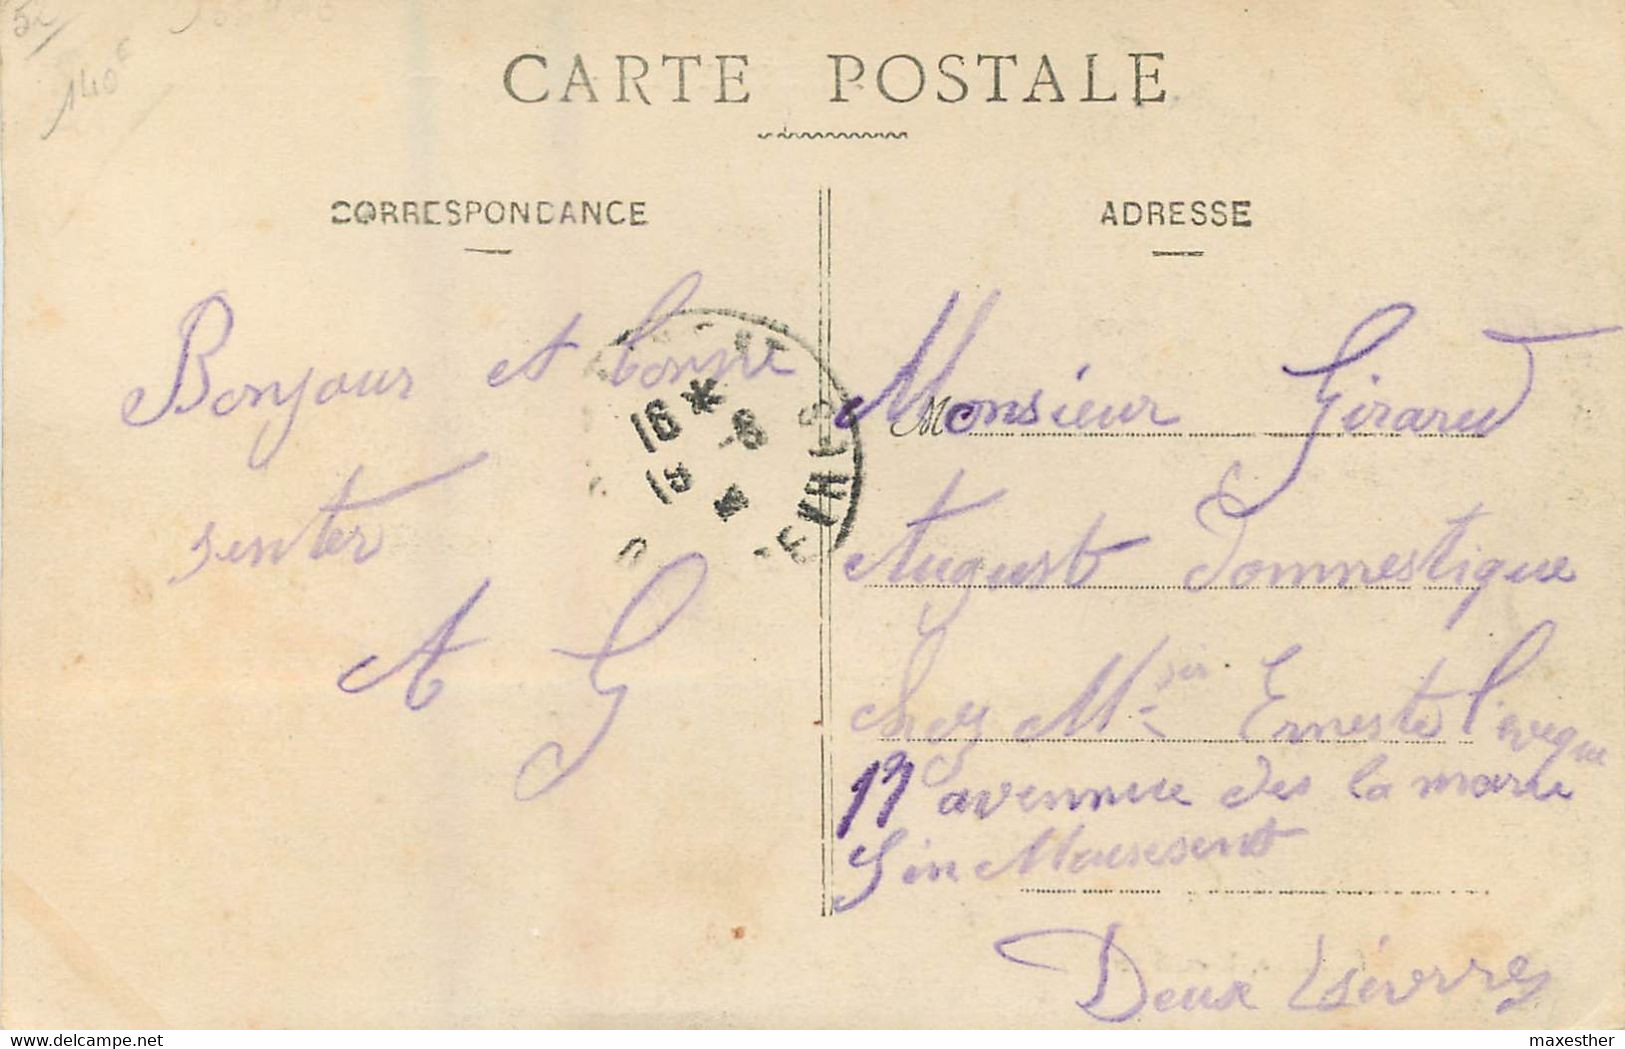 140
CARTE POSTALE
CORRESPONDANCE
ADRESSE
Bonjour et bonne
senter
A G
16 * -8
13
M
Monsieur Giraud
August Domnestique
Chez Mr sir Erneste l'eveque
19 avennue des la marie
Sin Maesesent
Deux Sévrres
delcampe.net
maxesther